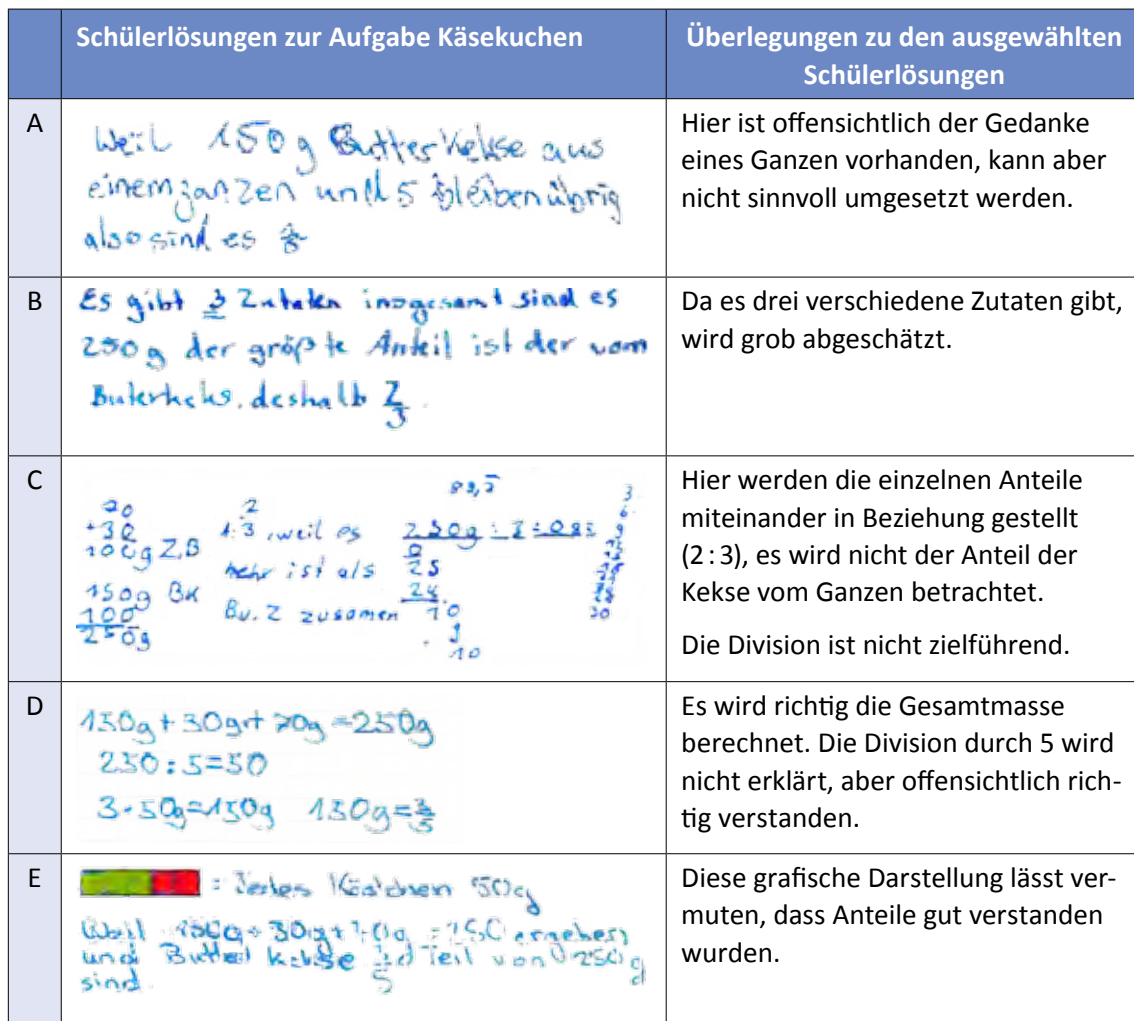 Schülerlösungen zur Aufgabe Käsekuchen
Überlegungen zu den ausgewählten
Schülerlösungen
A
Weil 150g Butterkekse aus
einem ganzen und 5 bleiben übrig
also sind es
Hier ist offensichtlich der Gedanke
eines Ganzen vorhanden, kann aber
nicht sinnvoll umgesetzt werden.
B
Es gibt 3 Zutaten insgesamt sind es
250g der größte Anteil ist der vom
Buterkeks. deshalb 2/3.
Da es drei verschiedene Zutaten gibt,
wird grob abgeschätzt.
C
+30
100g Z,B
150g BK
100
250g
2
1:3, weil es
mehr ist als
Bu. Z zusamen
250g : 3 =
25
24
10
9
10
Hier werden die einzelnen Anteile
miteinander in Beziehung gestellt
(2 : 3), es wird nicht der Anteil der
Kekse vom Ganzen betrachtet.
Die Division ist nicht zielführend.
D
150g + 30g + 70g = 250g
250 : 5 = 50
3 · 50g = 150g 150g = 3/5
Es wird richtig die Gesamtmasse
berechnet. Die Division durch 5 wird
nicht erklärt, aber offensichtlich rich-
tig verstanden.
E
: Jedes Kästchen 50g
Weil 150g + 30g + 70g = 250 ergeben
und Butter kekse 3/5 d Teil von 250g
sind.
Diese grafische Darstellung lässt ver-
muten, dass Anteile gut verstanden
wurden.